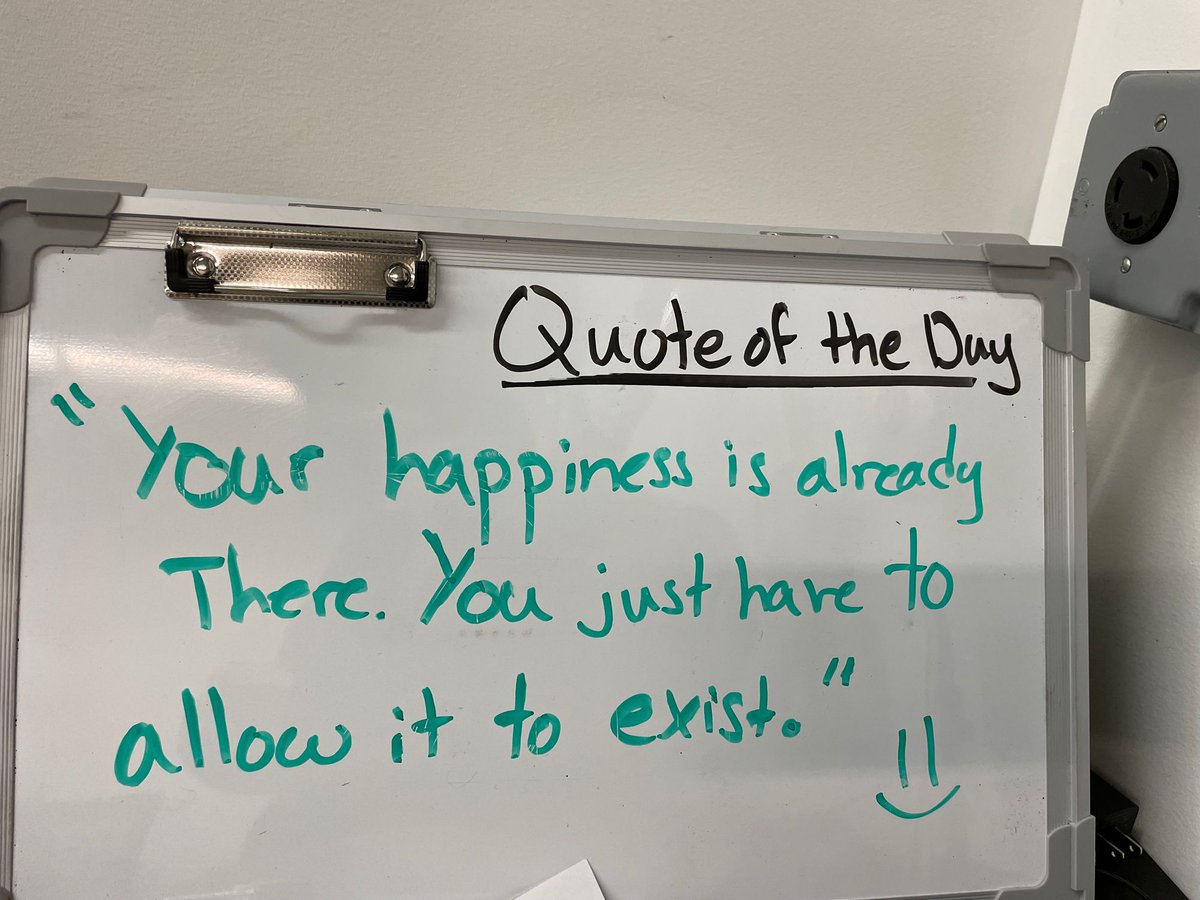 Quote of the Day
"Your happiness is already
There. You just have to
allow it to exist."